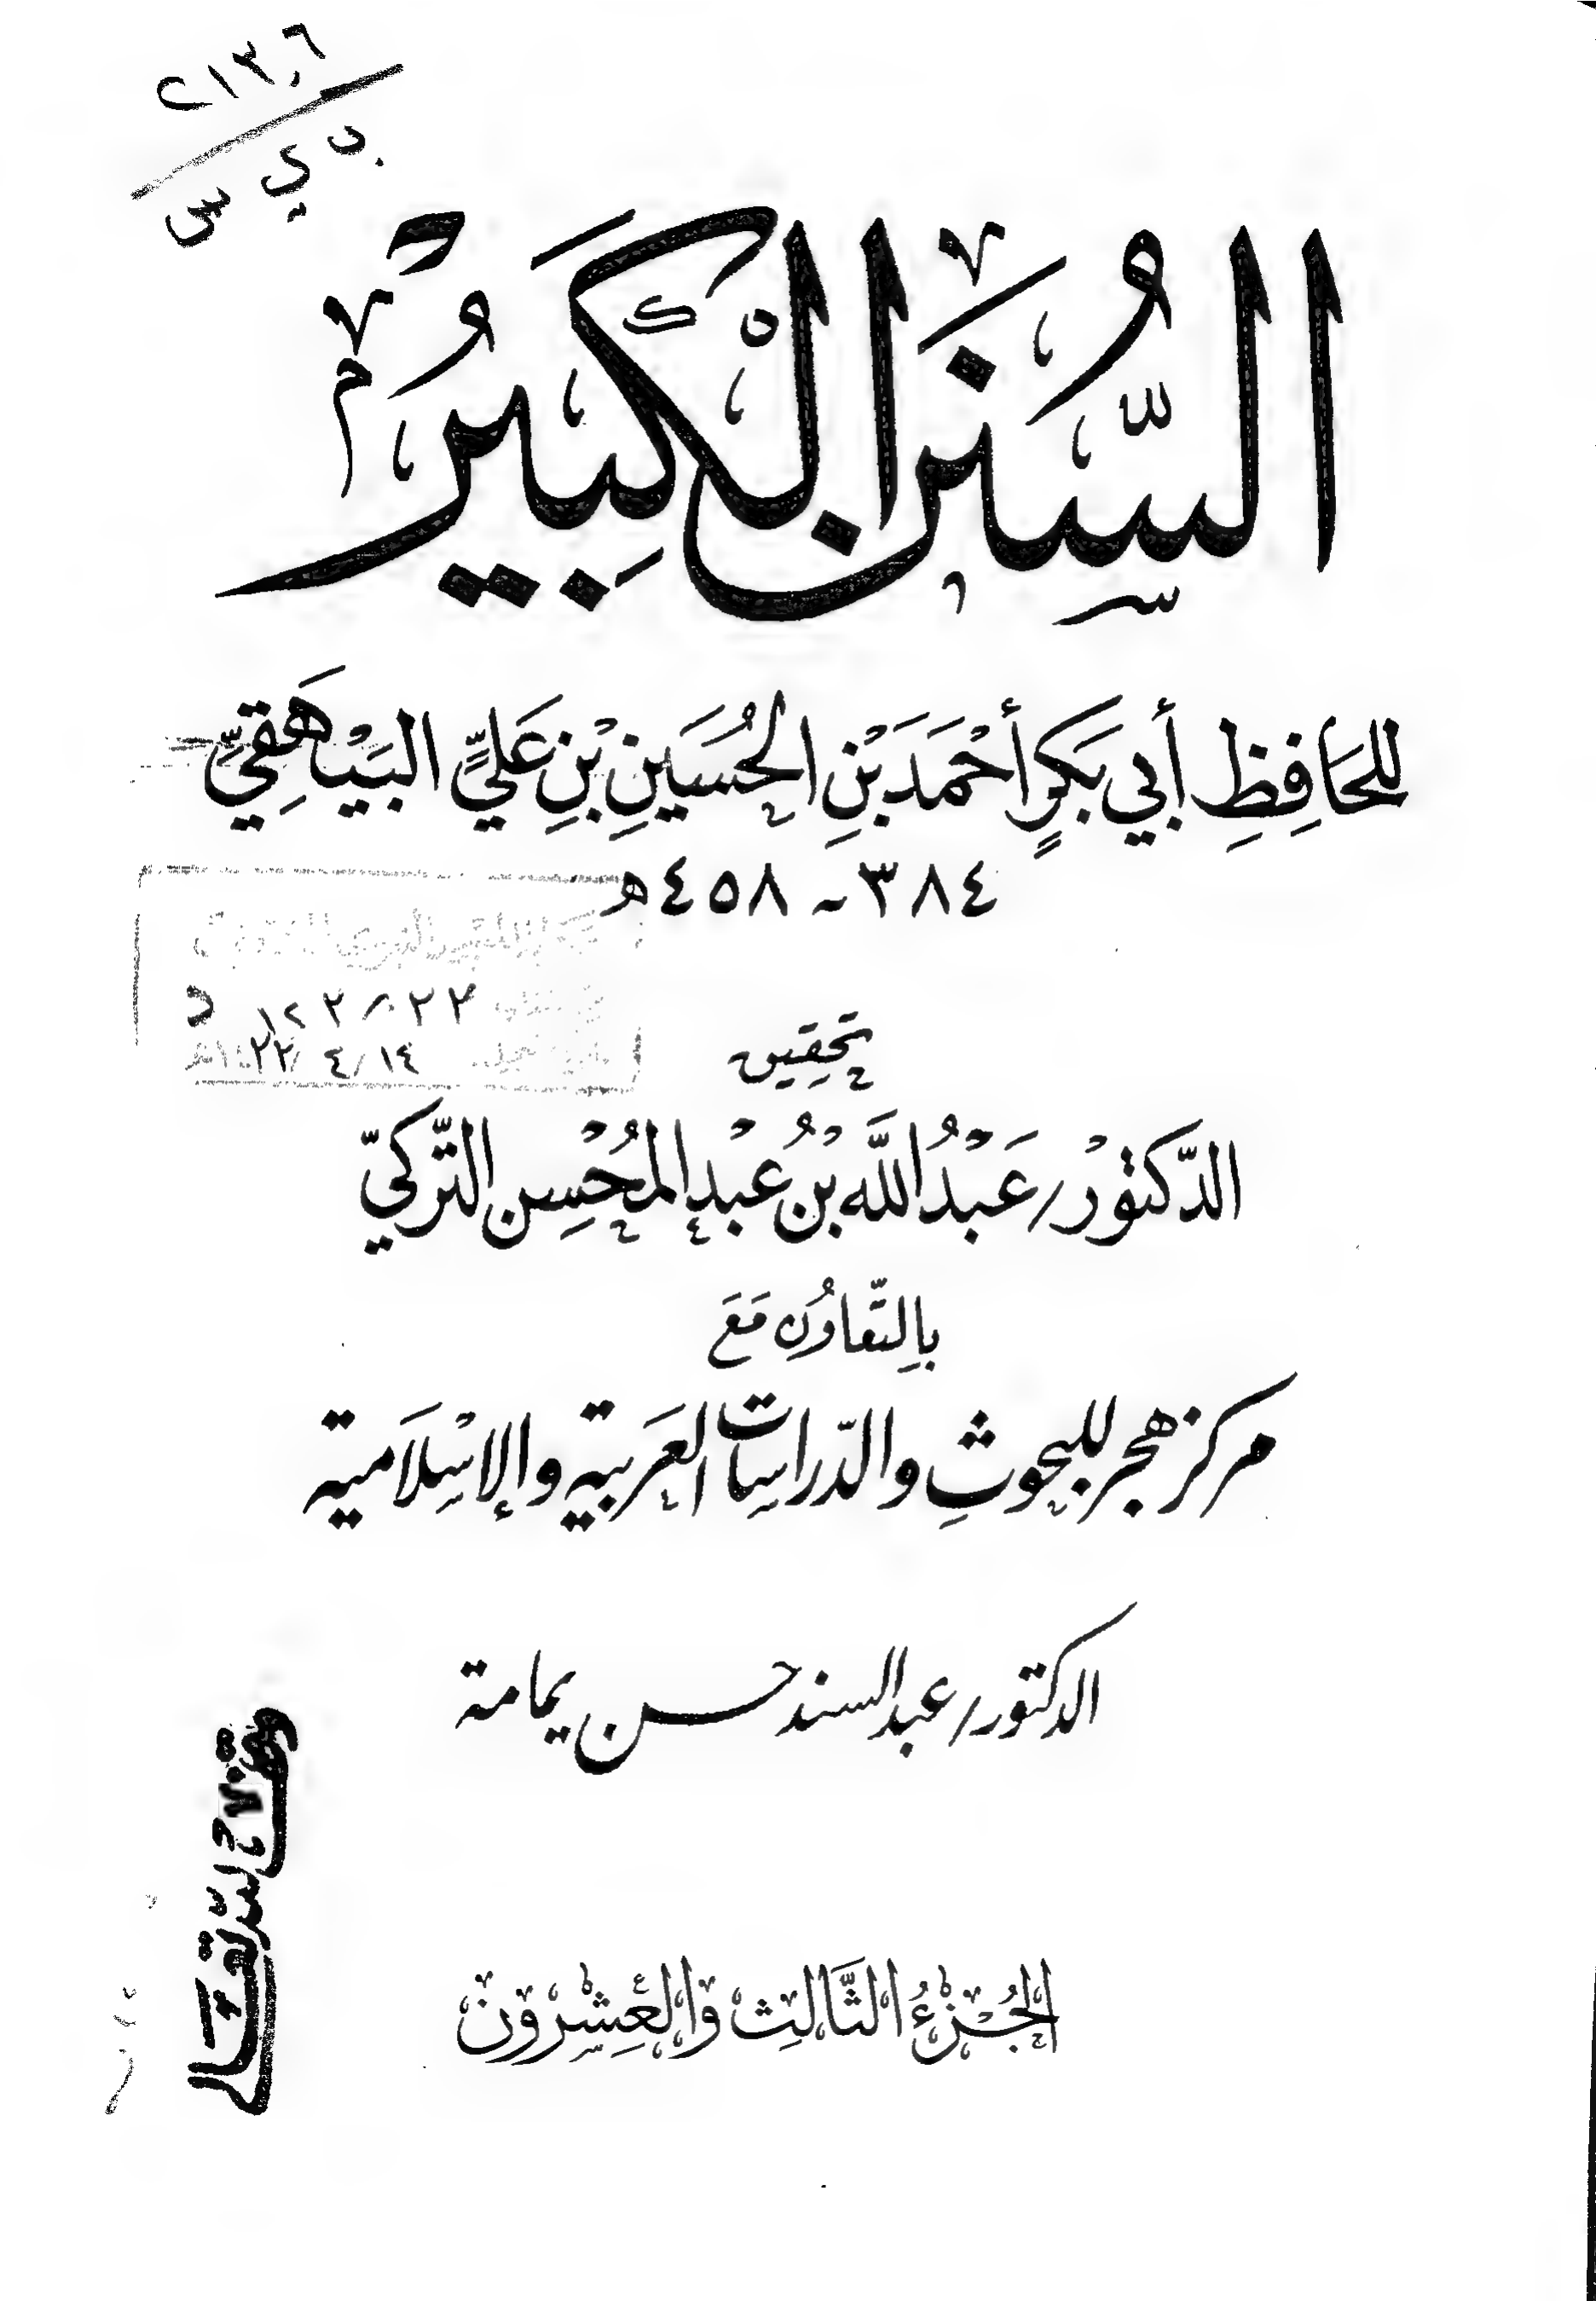 ٢١٣,٦
ب ي س
السُّنَنُ الْكَبِيرُ
للحَافِظِ أَبِي بَكرٍ أَحْمَدَ بْنِ الحُسَينِ بْنِ عَليٍّ البَيْهَقِيِّ
٣٨٤ - ٤٥٨ هـ
١٤ / ٤ /
تحقِيق
الدّكتورْ / عَبْدُ اللَّه بْنُ عَبْدِ المُحْسِن التّركيّ
بِالتّعاوُن مَعَ
مركز هجر للبحوثِ والدّراسات العَربية والإسْلَامية
الدكتور / عبد السند حسن يمامة
وقف لله تعالى
الجُزْءُ الثَّالِث وَالعِشْرُونَ